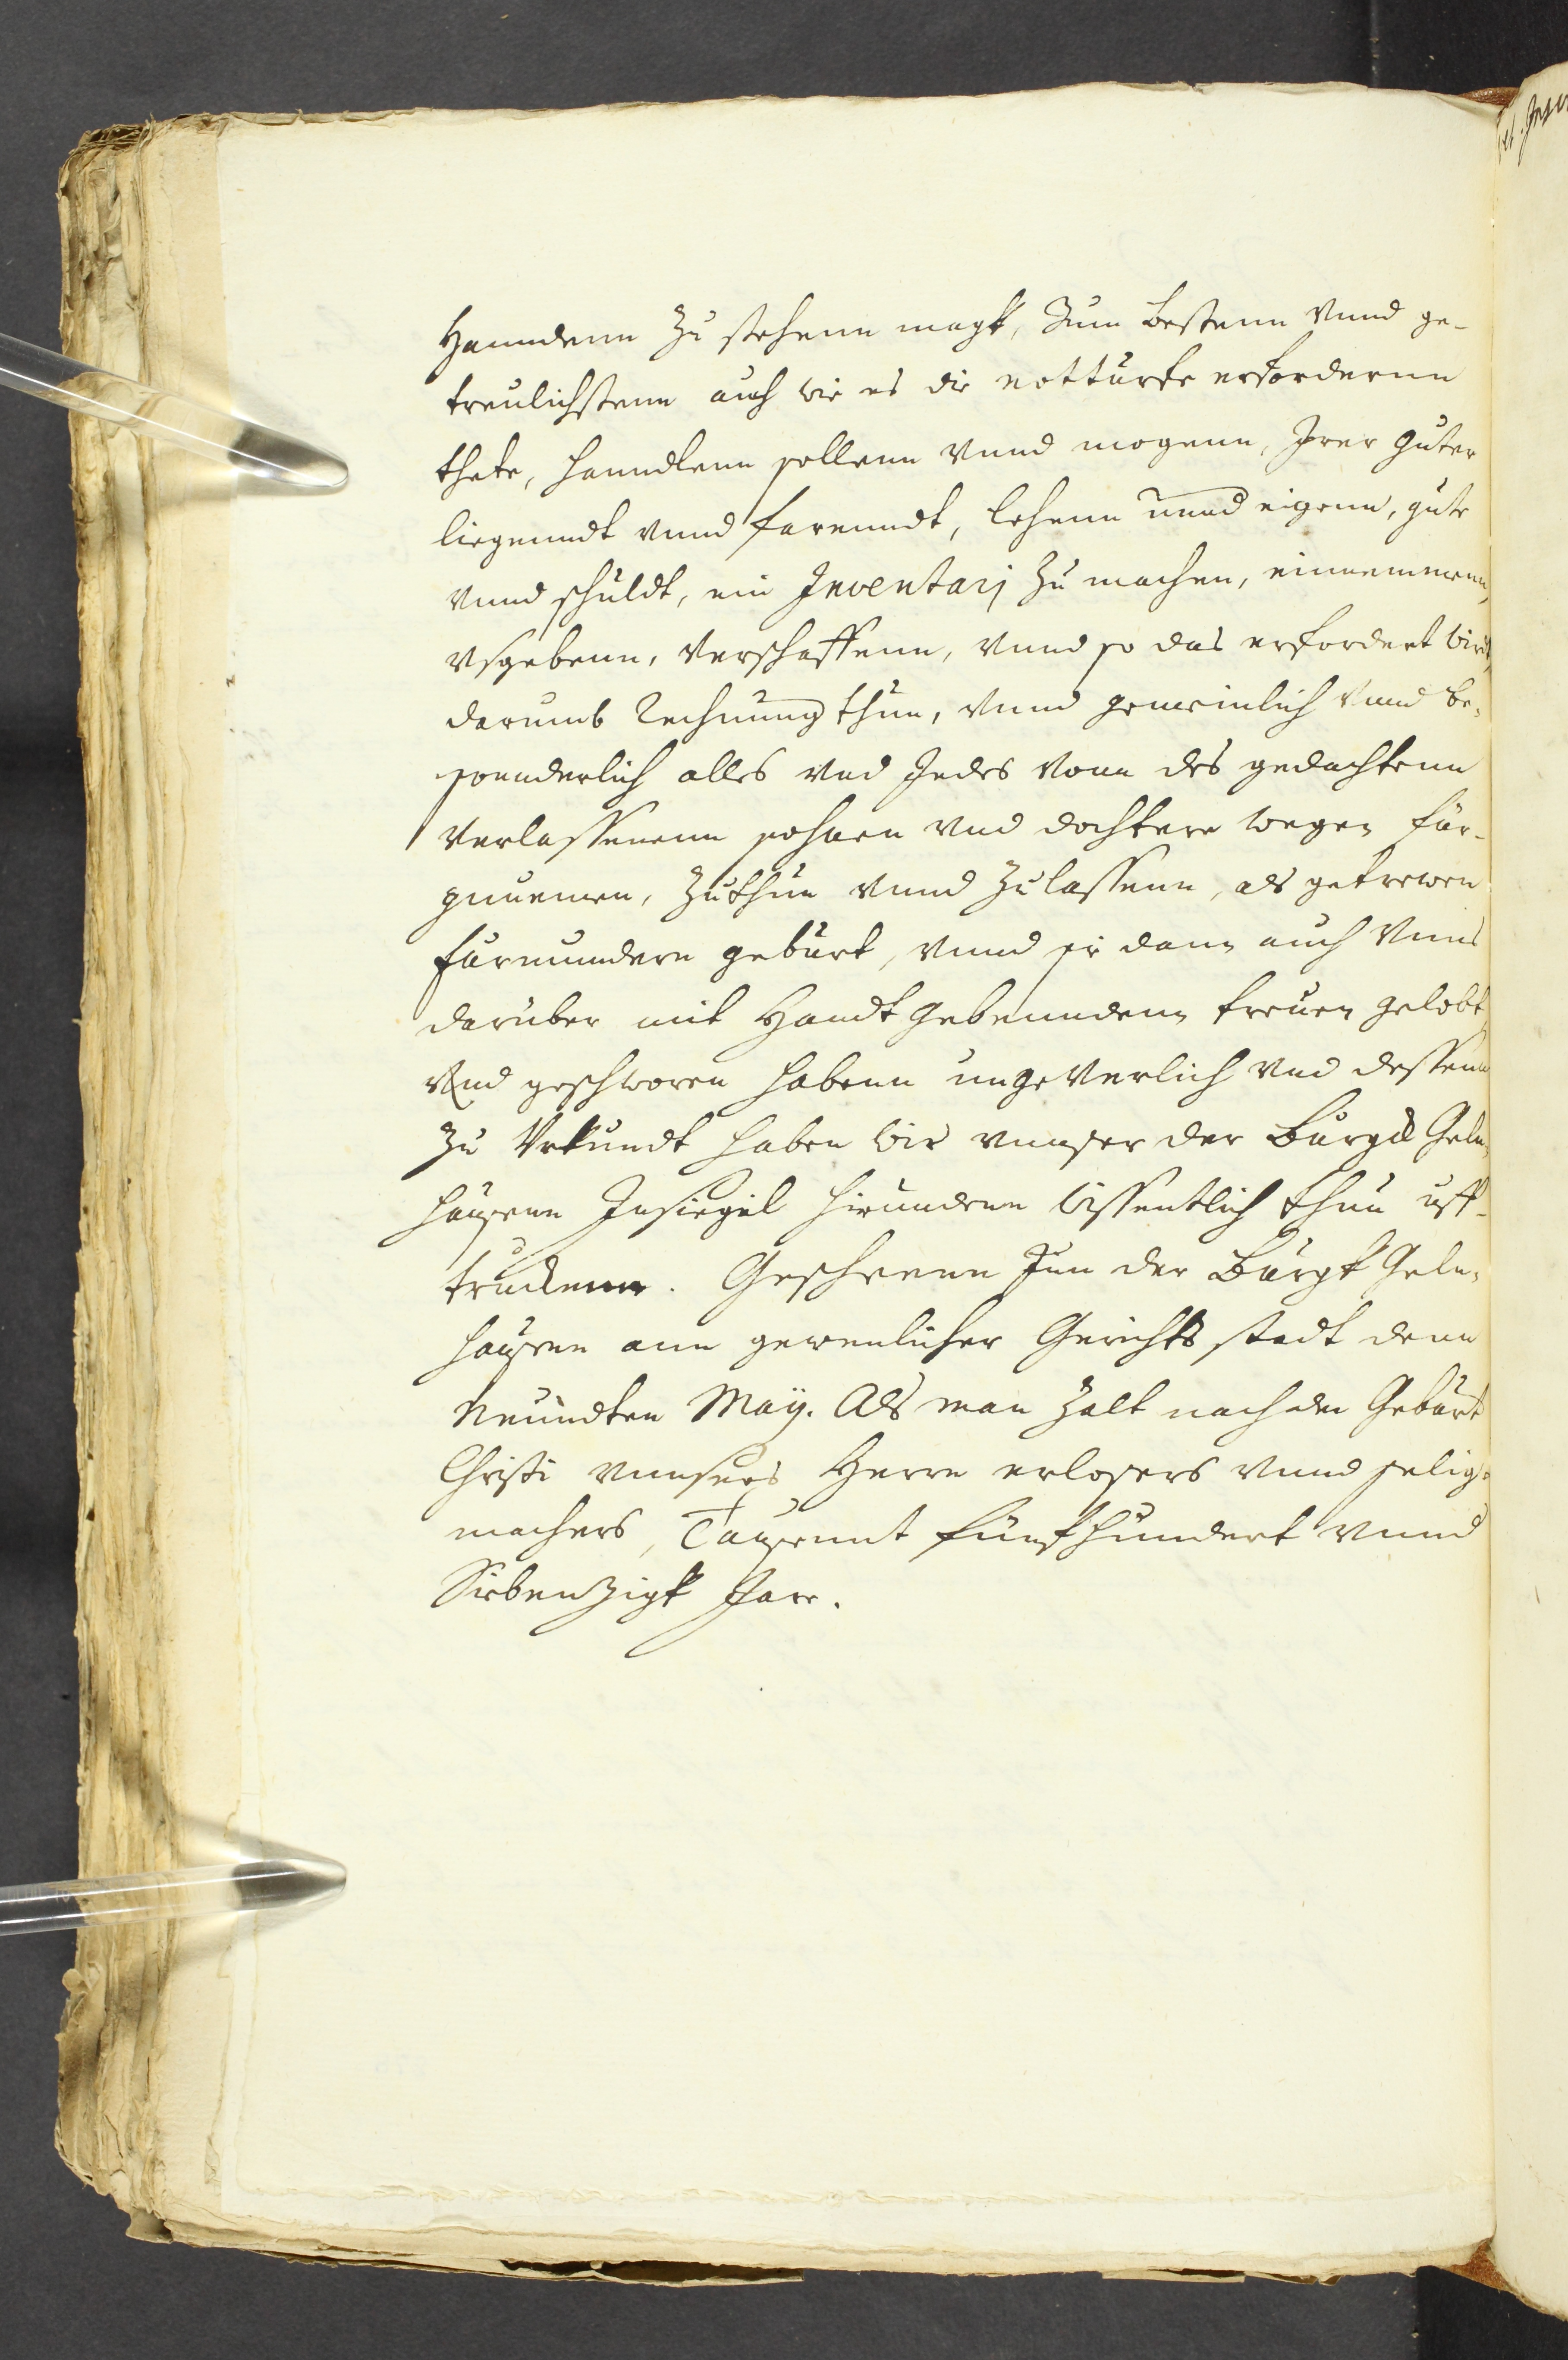 Hanndenn zu stehenn magk, Zum bestenn vnnd ge-
treulichstenn auch wie es die notturfte erfordernn
thete, hanndlenn sollenn vnnd mogenn, Irer guter
liegenndt vnnd farenndt, lehenn vnnd eigenn, gute
vnnd schuldt, ein Inventarj zu machen, einnemmenn,
vsgebenn, verschaffenn, vnnd so das erfordert wirdt,
darumb Rechnung thun, vnnd gemeinlich vnnd be-
sonnderlich alles vnd Jedes vonn des gedachtenn
verlassenenn sohnen vnd dochtere wegen für-
zunemen, zuthun vnnd zulassenn, als getrewen
furmundern geburt, vnnd sie dann auch Vnns
darüber mit Handt gebenndenn treuen gelobt
vnd geschworen habenn ungeverlich vnd dessenn
zu Vrkundt haben wir vnnser der Burgk Geln-
hausenn Insiegel hirundenn wissentlich thun uff-
truckenn. Geschehenn Inn der Burgk Geln-
hausenn ann gewenlicher Gerichts stadt denn
Neundten Maÿ. Als man zalt nach der Geburt
Christi vnnsers Herrn erlosers vnnd selig-
machers, Tausennt fünfhundert vnnd
Siebenzigk Jare.